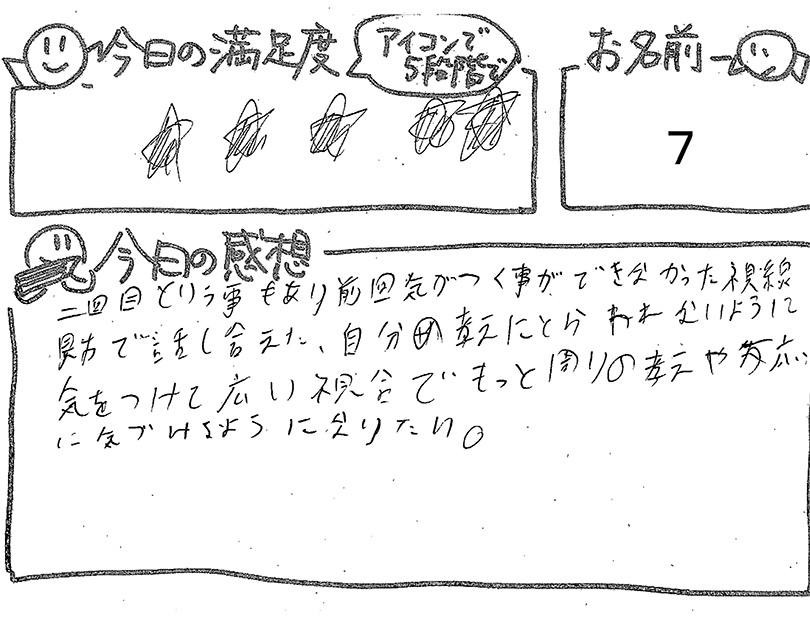 今日の満足度
アイコンで
5段階で
お名前
7
今日の感想
二回目という事もあり前回気がつく事ができなかった視線
見方で話し合えた、自分の考えにとらわれないように
気をつけて広い視合でもっと周りの考えや反応
に気づけるようになりたい。